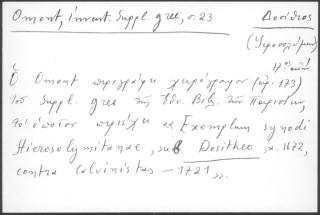 Omont, invent. Suppl. grec, σ. 23 Δοσίθεος
(Ἱεροσολύμων)
Ὁ Omont περιγράφει χειρόγραφον (ἀρ. 173)
τοῦ Suppl. grec τῆς Ἐθν. Βιβ. τῶν Παρισίων,
τὸ ὁποῖον περιέχει «Exemplum synodi
Hierosolymitanae, sub Dositheo, a. 1672,
contra calvinistas – 1721».